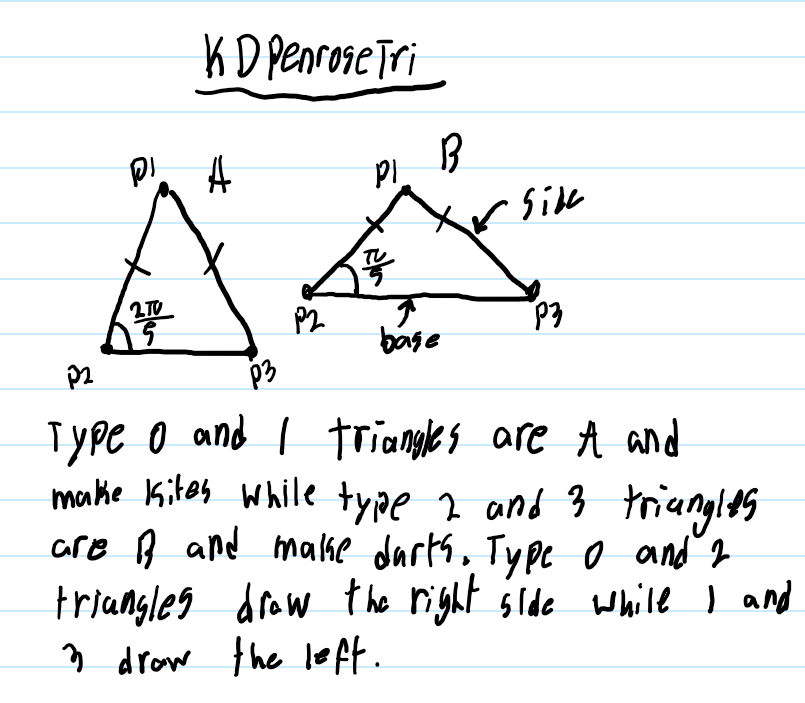 KDPenroseTri
P1 A
P1 B
side
2π/5
π/5
P2 P3
P2 P3
base
Type 0 and 1 triangles are A and
make kites while type 2 and 3 triangles
are B and make darts. Type 0 and 2
triangles draw the right side while 1 and
3 draw the left.